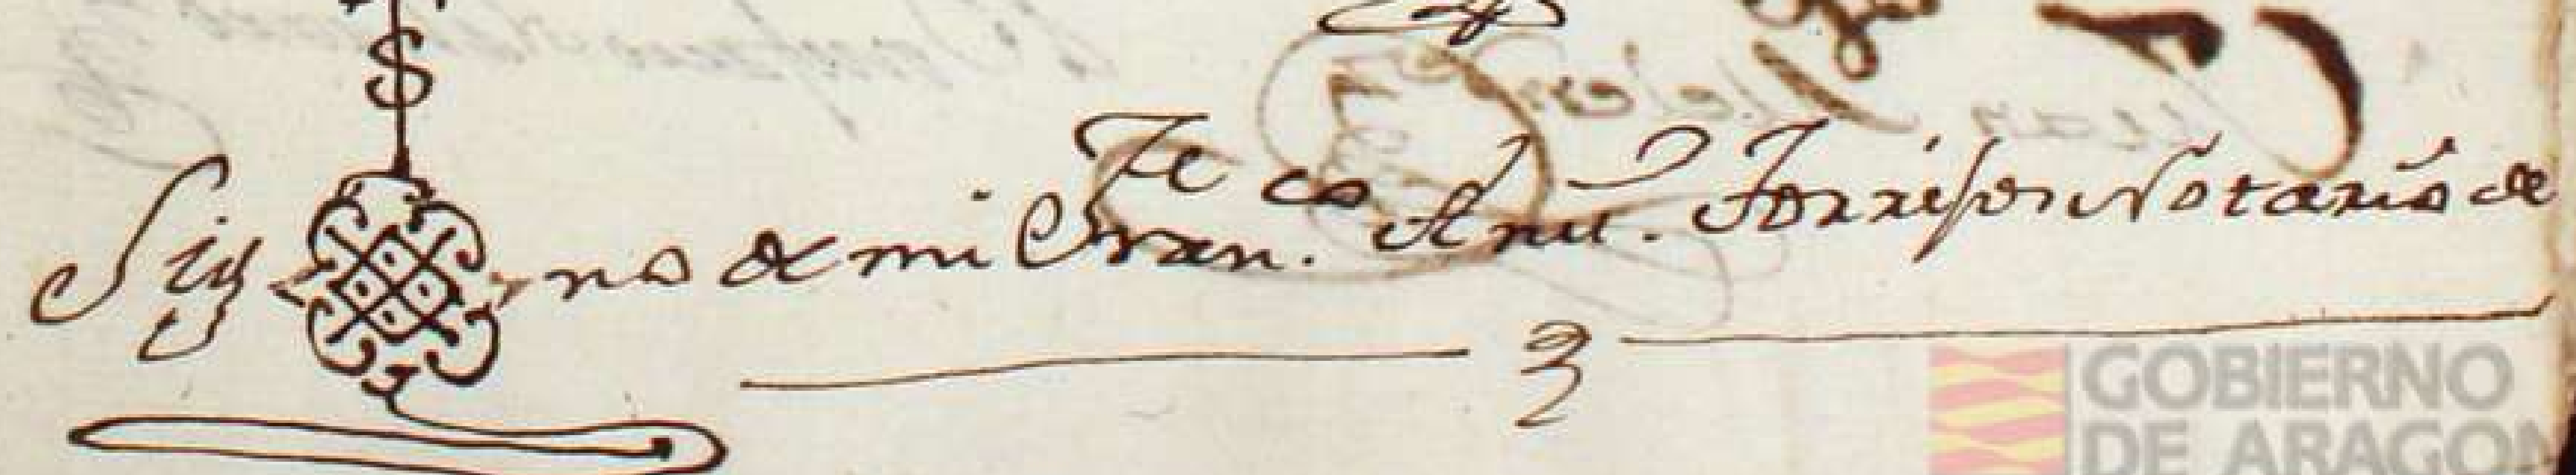 Sig no de mi Fran.co Anto. Torrijon Notario de
GOBIERNO
DE ARAGON